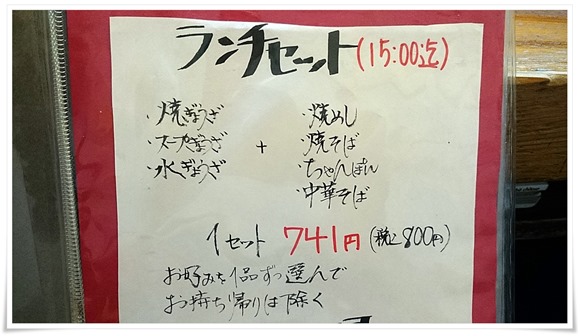 ランチセット(15:00迄)
・焼ぎょうざ
・スープぎょうざ
・水ぎょうざ
+
・焼めし
・焼そば
・ちゃんぽん
・中華そば
1セット 741円(税込800円)
お好みを1品ずつ選んで
お持ち帰りは除く